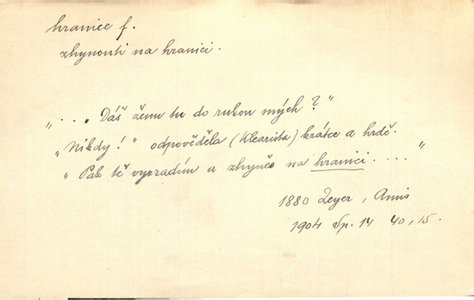 hranice f.
zhynouti na hranici.
„ . . . Dáš ženu tu do rukou mých?"
„Nikdy!" odpověděla (Klearista) krátce a hrdě.
„Pak tě vyzradím a zhyneš na hranici. . . . "
1880 Zeyer, Amis
1904 Sp. 14 40, 15.